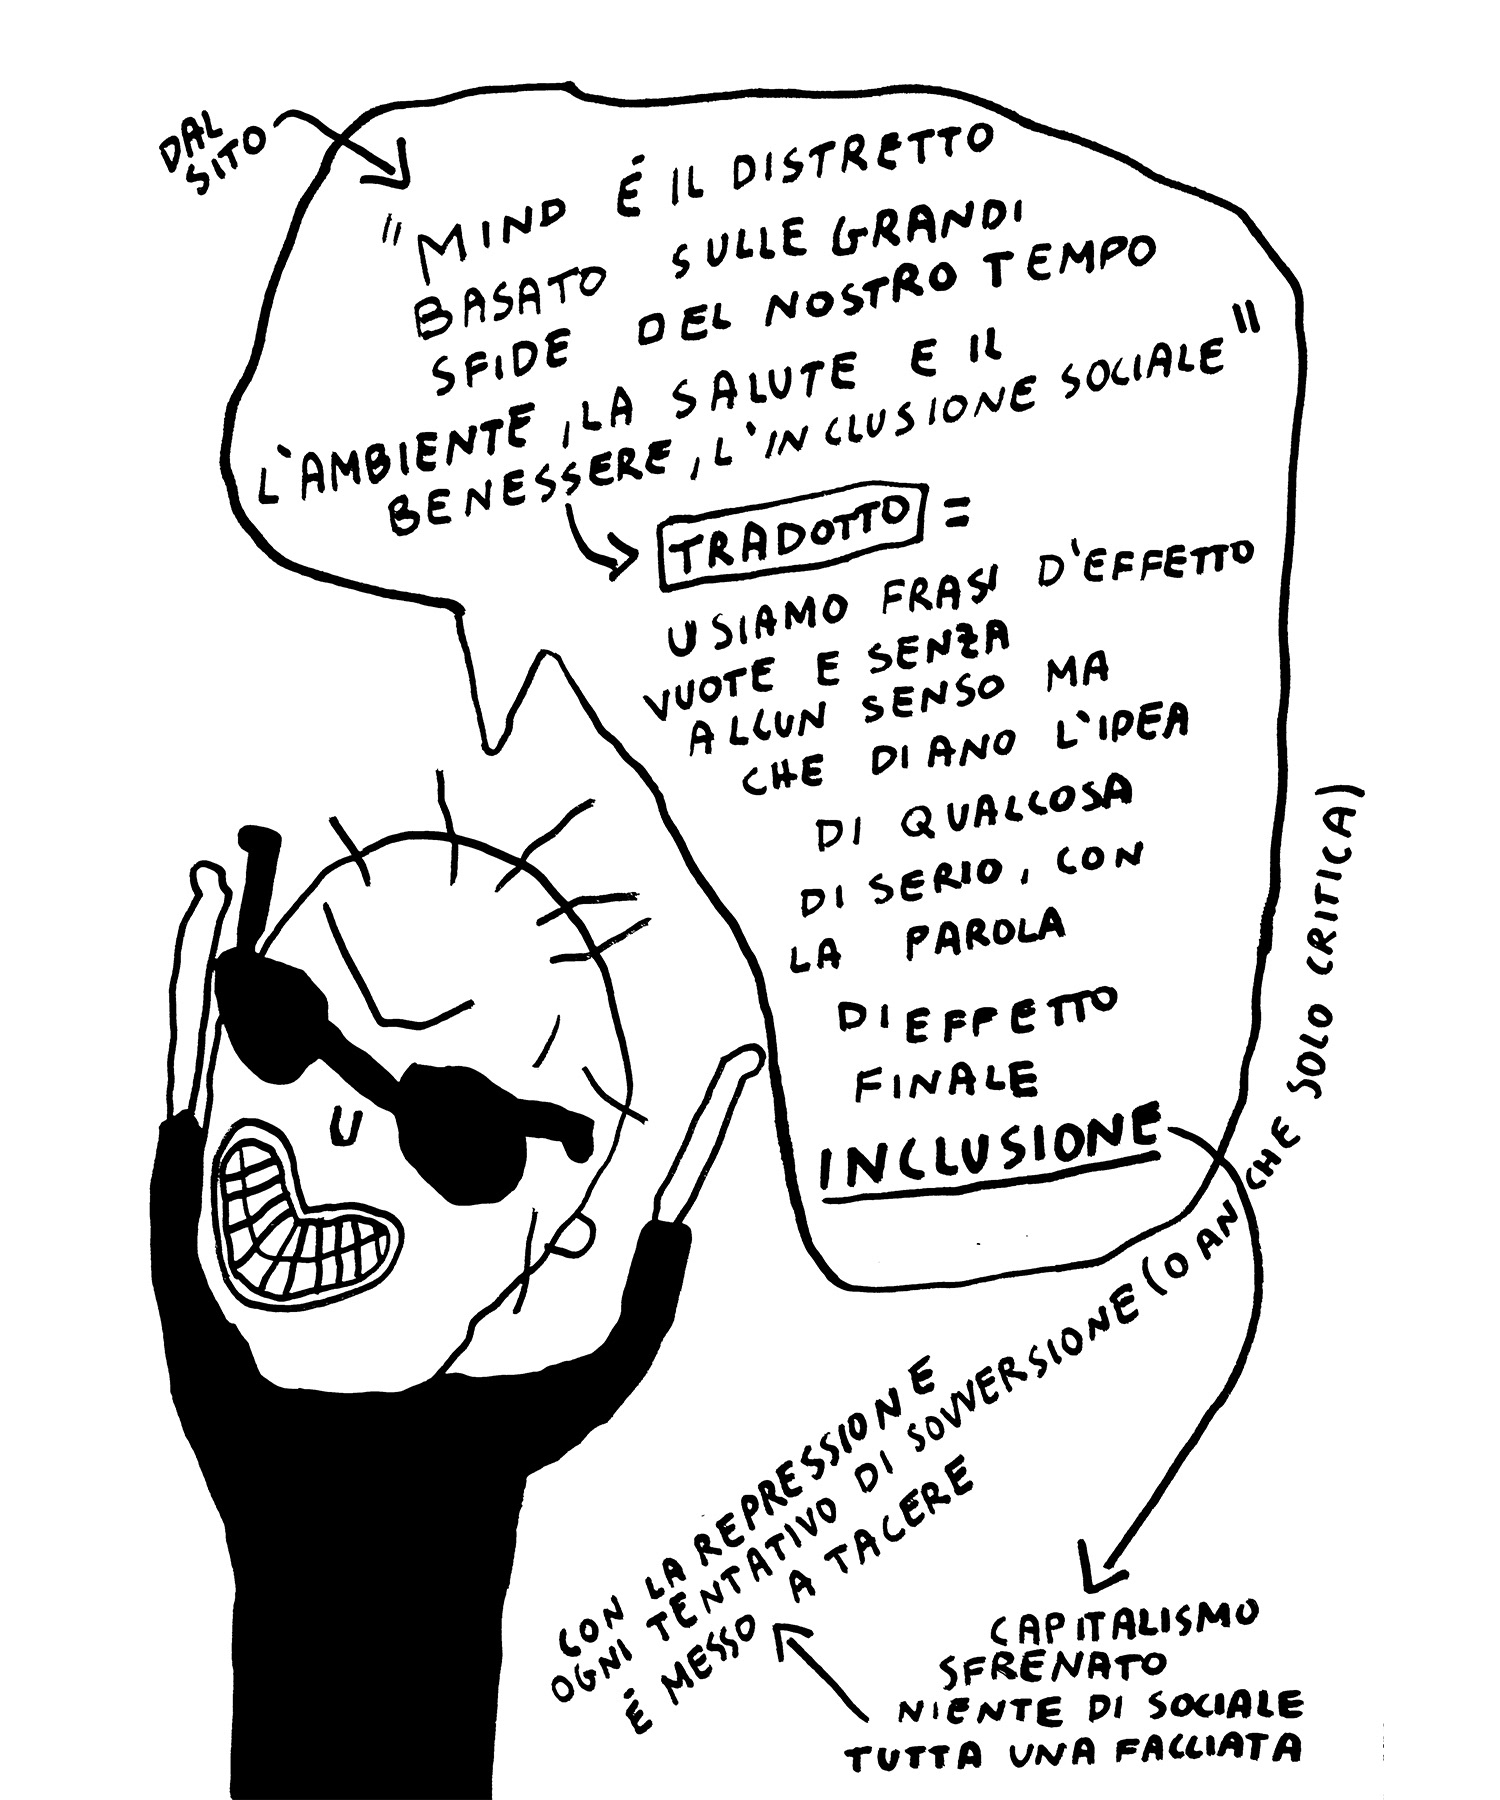 DAL
SITO
"MIND É IL DISTRETTO
BASATO SULLE GRANDI
SFIDE DEL NOSTRO TEMPO
L'AMBIENTE, LA SALUTE E IL
BENESSERE, L'INCLUSIONE SOCIALE"
TRADOTTO =
USIAMO FRASI D'EFFETTO
VUOTE E SENZA
ALCUN SENSO MA
CHE DIANO L'IDEA
DI QUALCOSA
DI SERIO, CON
LA PAROLA
DI EFFETTO
FINALE
INCLUSIONE
CAPITALISMO
SFRENATO
NIENTE DI SOCIALE
TUTTA UNA FACCIATA
CON LA REPRESSIONE
OGNI TENTATIVO DI SOVVERSIONE (O ANCHE SOLO CRITICA)
É MESSO A TACERE